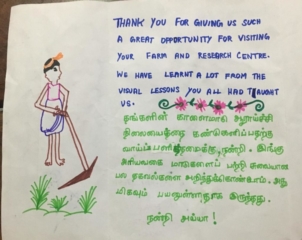 THANK YOU FOR GIVING US SUCH
A GREAT OPPORTUNITY FOR VISITING
YOUR FARM AND RESEARCH CENTRE.
WE HAVE LEARNT A LOT FROM THE
VISUAL LESSONS YOU ALL HAD TAUGHT
US.
தங்களின் காளைமாடு ஆராய்ச்சி
நிலையத்தை கண்டுகளிப்பதற்கு
நன்றி. இங்கு
பற்றி
பல தகவல்களை அறிந்துக்கொண்டோம். அது
மிகவும் பயனுள்ளதாக இருந்தது.
நன்றி அய்யா!